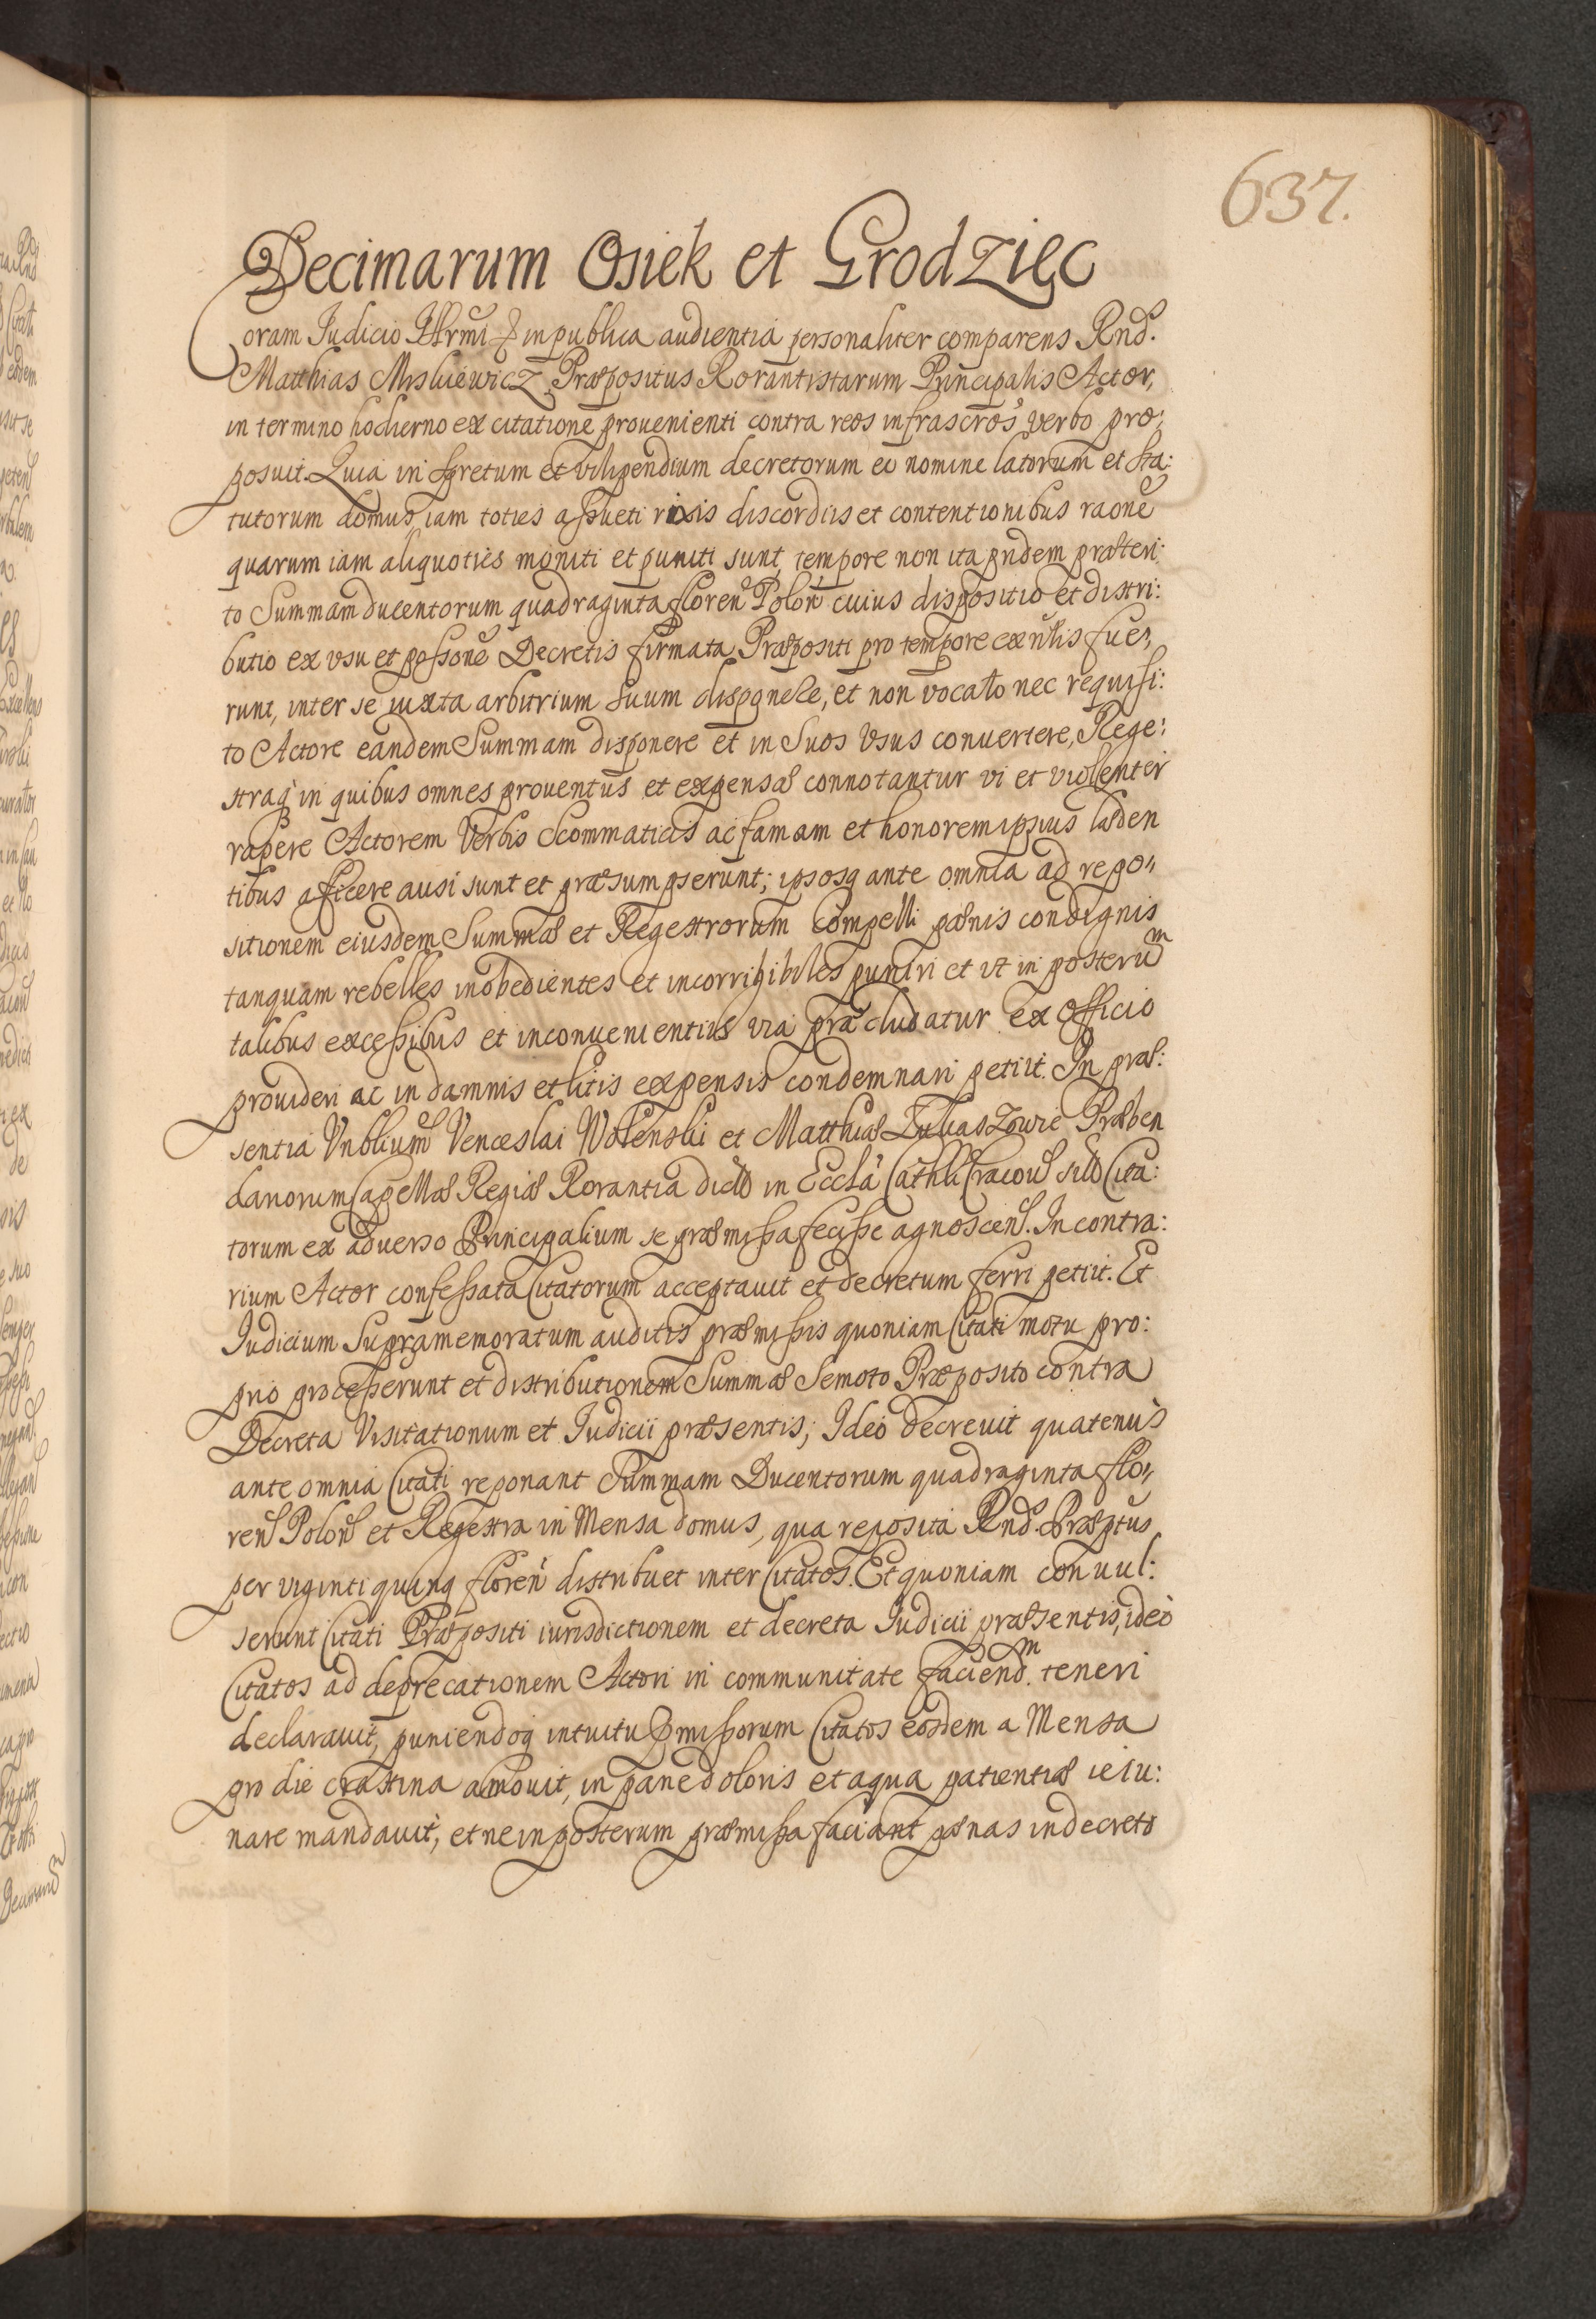 637.
Decimarum Osiek et Grodziec
Coram Judicio Illrmi & in publica audientia personaliter comparens Rnd.
Matthias Miskiewicz Præpositus Rorantistarum Principalis Actor,
in termino hodierno ex citatione prouenienti contra reos infrascros verbo pro:
posuit. Quia in spretum et vilipendium decretorum eo nomine latorum et sta:
tutorum domus, iam toties assueti rixis discordiis et contentionibus raone
quarum iam aliquoties moniti et puniti sunt, tempore non ita pridem præteri:
to Summam ducentorum quadraginta floren Polon cuius dispositio et distri:
butio ex vsu et possone Decretis firmata Præpositi pro tempore exnlis fue,
runt, inter se iuxta arbitrium suum disponere, et non vocato nec requisi:
to Actore eandem Summam disponere et in suos vsus conuertere, Rege:
straq in quibus omnes prouentus et expensæ connotantur vi et violenter
rapere Actorem Verbis Scommaticis ac famam et honorem ipsius læden
tibus afficere ausi sunt et præsumpserunt; ipsosq ante omnia ad repo,,
sitionem eiusdem Summæ et Regestrorum Compelli pænis condignis
tanquam rebelles inobedientes et incorrigibiles puniri et vt in posterum
talibus excessibus et inconuenientiis via præcludatur ex Officio
prouideri ac in damnis et litis expensis condemnari petiit. In præ:
sentia Vnblium Venceslai Wolenski et Matthiæ Præben
danorum Capellæ Regiæ Rorantia dictæ in Ecclâ Cathli Cracoui sitæ Cita:
torum ex aduerso Principalium se præmissa fecisse agnoscen. In contra:
rium Actor confessata Citatorum acceptauit et decretum ferri petiit. Et
Judicium Supramemoratum auditis præmissis quoniam Citati motu pro:
prio processerunt et distributionem Summæ Semoto Præposito contra
Decreta Visitationum et Judicii præsentis; Ideo decreuit quatenus
ante omnia Citati reponant Summam Ducentorum quadraginta flo,,
ren Polon et Regestra in Mensa domus, qua reposita Rnd. Præptus
per viginti quinq floren distribuet inter Citatos. Et quoniam conuul:
serunt Citati Præpositi iurisdictionem et decreta Judicii præsentis, ideo
Citatos ad deprecationem Actori in communitate faciendm. teneri
declarauit, puniendoq intuitu pmissorum Citatos eosdem a Mensa
pro die crastina amouit, in pane doloris et aqua patientiæ ieiu:
nare mandauit, et ne in posterum præmissa faciant pænas in decreto